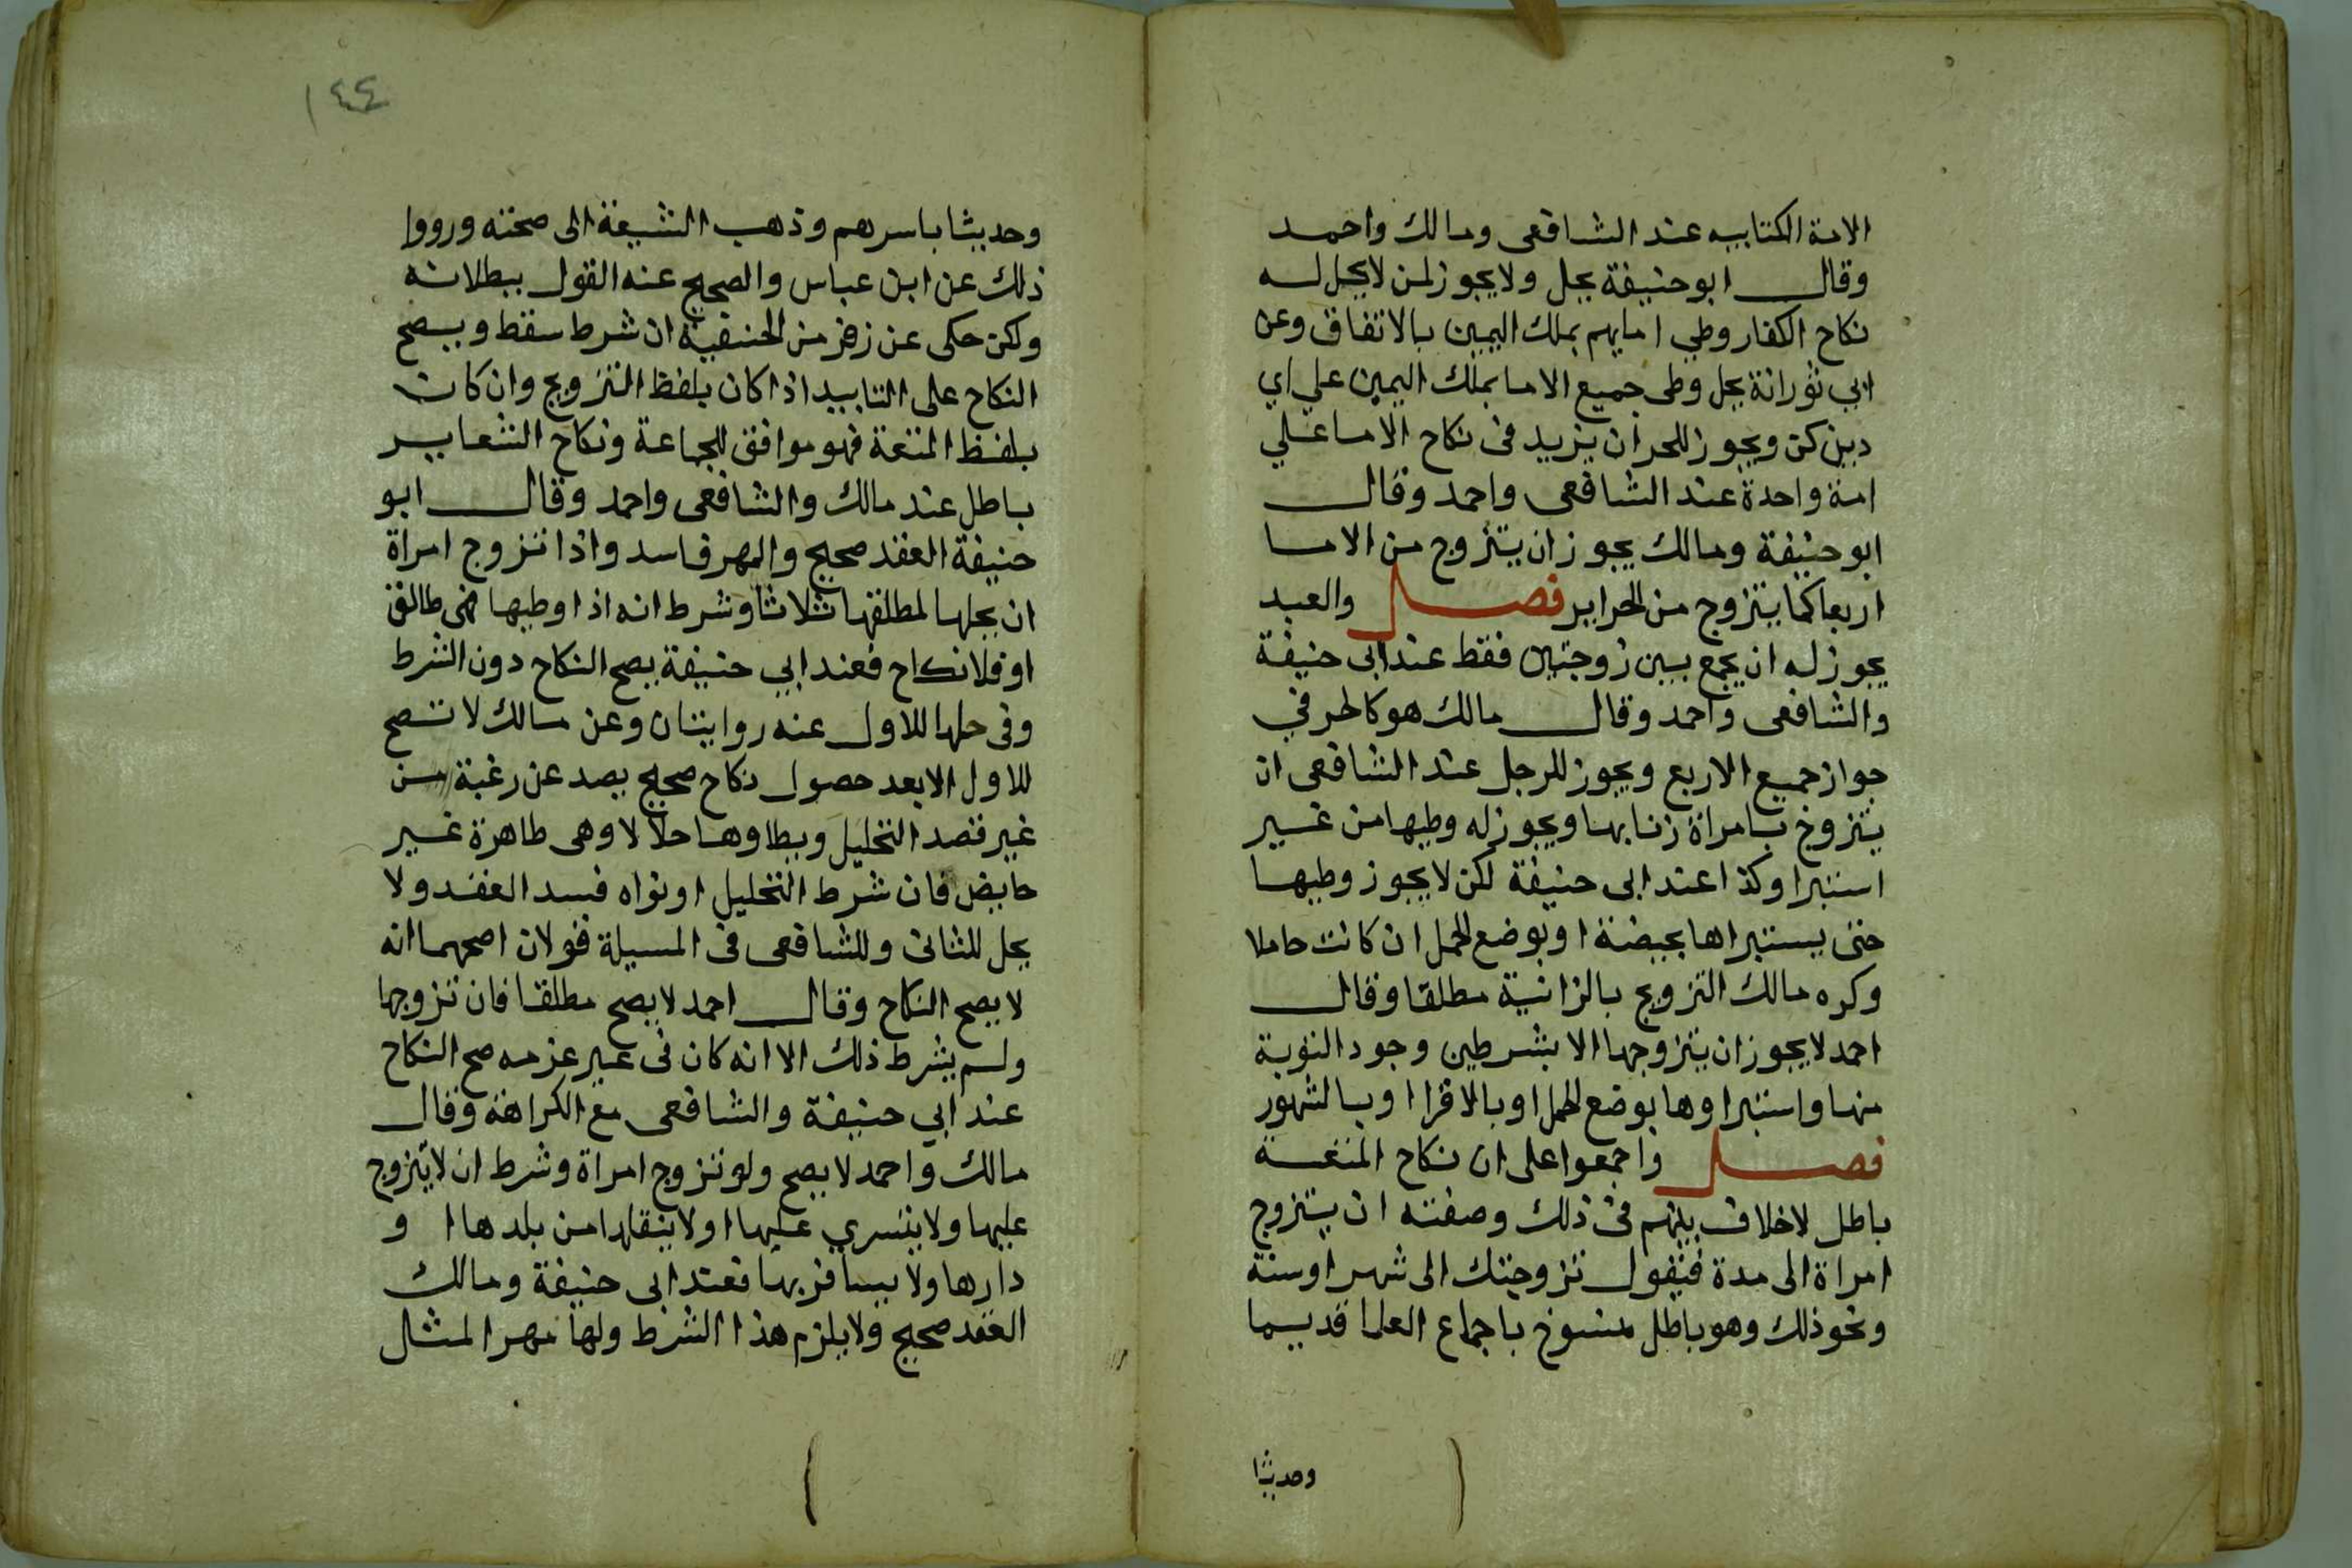 الامة الكتابيه عند الشافعى ومالك واحمد
وقال ابو حنيفة يحل ولا يجوز لمن لا يحل له
نكاح الكفار وطي امايهم بملك اليمين بالاتفاق وعن
ابي ثور انة يحل وطى جميع الاما بملك اليمين علي اي
دين كن ويجوز للحر ان يزيد فى نكاح الاما علي
امة واحدة عند الشافعى واحمد وقال
ابو حنيفة ومالك يجوز ان يتزوج من الاما
اربعا كما يتزوج من الحراير فصل والعبد
يجوز له ان يجمع بين زوجتين فقط عند ابى حنيفة
والشافعى واحمد وقال مالك هو كالحر في
جواز جميع الاربع ويجوز للرجل عند الشافعى ان
يتزوج بامراة زنا بها ويجوز له وطيها من غير
استبرا وكذا عند ابى حنيفة لكن لا يجوز وطيها
حتى يستبراها بحيضة او بوضع الحمل ان كانت حاملا
وكره مالك التزويج بالزانية مطلقا وقال
احمد لا يجوز ان يتزوجها الا بشرطين وجود التوبة
منها واستبراوها بوضع الحمل او بالاقرا او بالشهور
فصل واجمعوا على ان نكاح المتعة
باطل لا خلاف بينهم فى ذلك وصفته ان يتزوج
امراة الى مدة فيقول تزوجتك الى شهر او سنة
ونحو ذلك وهو باطل منسوخ باجماع العلما قديما
وحديثا
١٤٤
وحديثا باسرهم وذهب الشيعة الى صحته ورووا
ذلك عن ابن عباس والصحيح عنه القول ببطلانه
ولكن حكى عن زفر من الحنفية ان شرط سقط ويصح
النكاح على التابيد اذا كان بلفظ التزويج وان كان
بلفظ المتعة فهو موافق للجماعة ونكاح الشعاير
باطل عند مالك والشافعى واحمد وقال ابو
حنيفة العقد صحيح والمهر فاسد واذا تزوج امراة
ان يحلها لمطلقها ثلاثا وشرط انه اذا وطيها فهى طالق
او فلا نكاح فعند ابي حنيفة يصح النكاح دون الشرط
وفى حلها للاول عنه روايتان وعن مالك لا تصح
للاول الا بعد حصول نكاح صحيح يصد عن رغبة من
غير قصد التحليل ويطاوها حلالا وهى طاهرة غير
حايض فان شرط التحليل او نواه فسد العقد ولا
يحل للثانى وللشافعى فى المسيلة قولان اصحهما انه
لا يصح النكاح وقال احمد لا يصح مطلقا فان تزوجها
ولم يشرط ذلك الا انه كان فى عير عزمه صح النكاح
عند ابي حنيفة والشافعى مع الكراهة وقال
مالك واحمد لا يصح ولو تزوج امراة وشرط ان لا يتزوج
عليها ولا يتسري عليها او لا ينقلها من بلدها ا و
دارها ولا يسافر بها فعند ابى حنيفة ومالك
العقد صحيح ولا يلزم هذا الشرط ولها مهر المثال